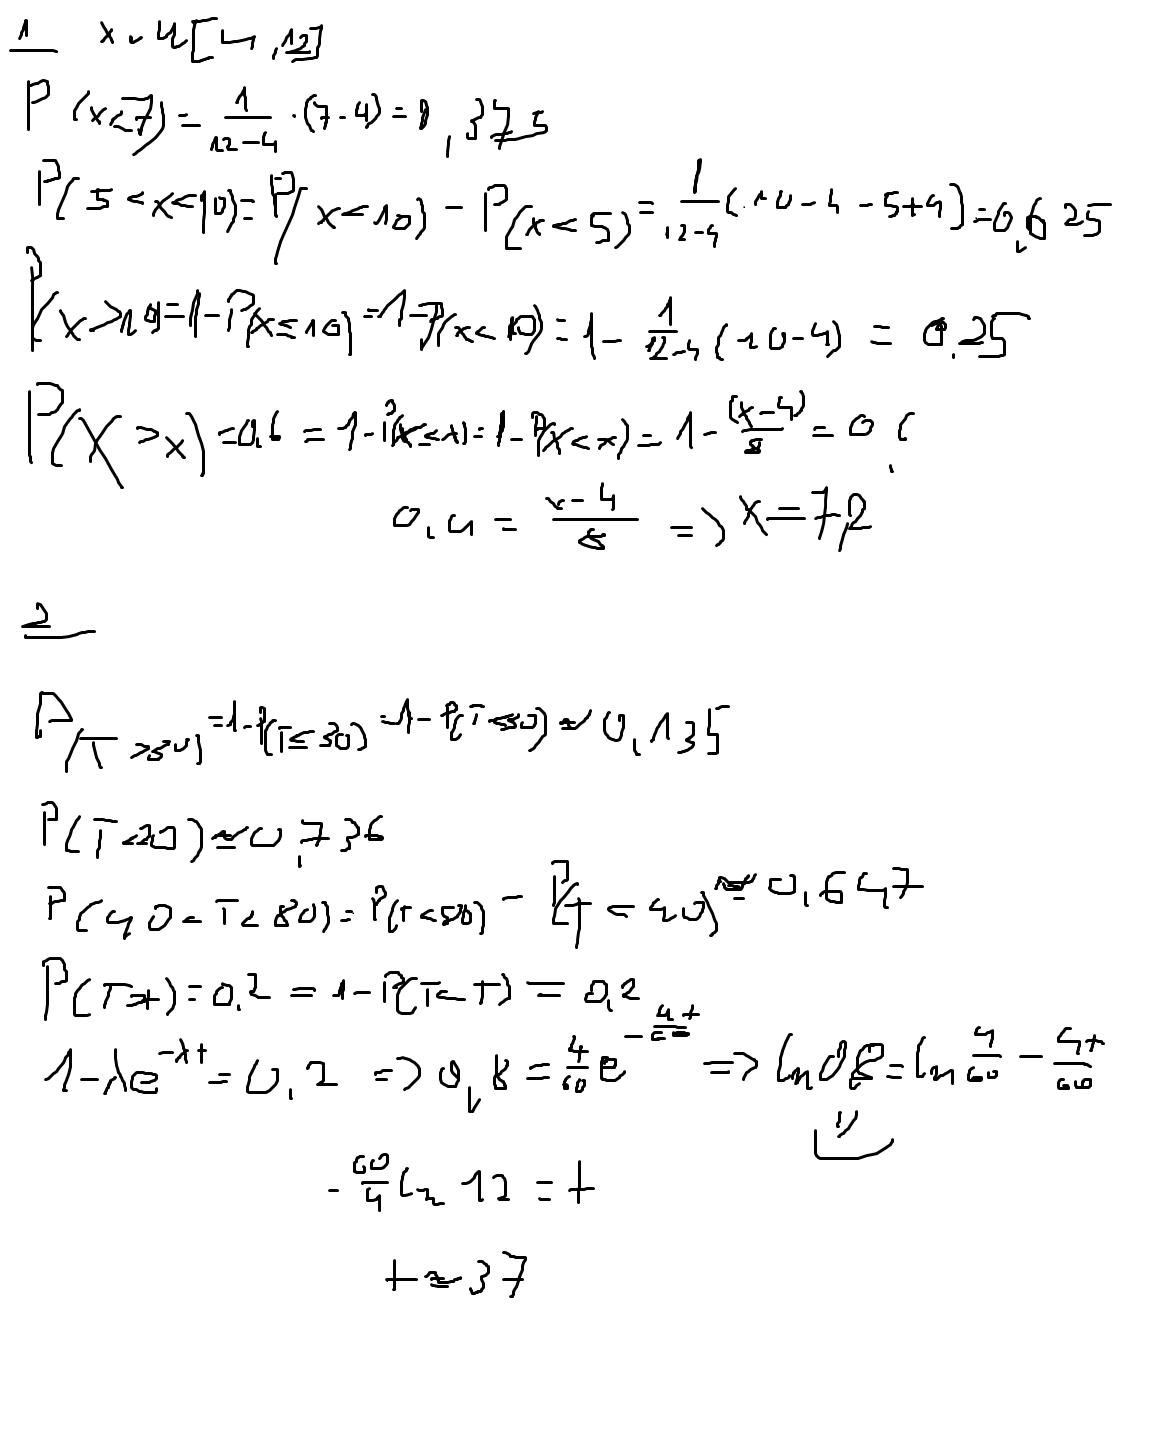 1 x ~ U[4,12]
P(x<7) = 1/(12-4) · (7-4) = 0,375
P(5<x<10) = P(x<10) - P(x<5) = 1/(12-4) (10-4-5+4) = 0,625
P(x>10) = 1-P(x≤10) = 1-P(x<10) = 1 - 1/(12-4) (10-4) = 0,25
P(X>x) = 0,6 = 1-P(X≤x) = 1-P(X<x) = 1 - (x-4)/8 = 0,6
0,4 = (x-4)/8 => x=7,2
2
P(T>30) = 1-P(T≤30) = 1-P(T<30) ≈ 0,135
P(T<20) ≈ 0,736
P(40<T<80) = P(T<80) - P(T<40) ≈ 0,647
P(T>t) = 0,2 = 1-P(T<t) = 0,2
1-λe^(-λt) = 0,2 => 0,8 = 4/60 e^(-4t/60) => ln 0,8 = ln 4/60 - 4t/60
-60/4 ln 12 = t
t ≈ 37